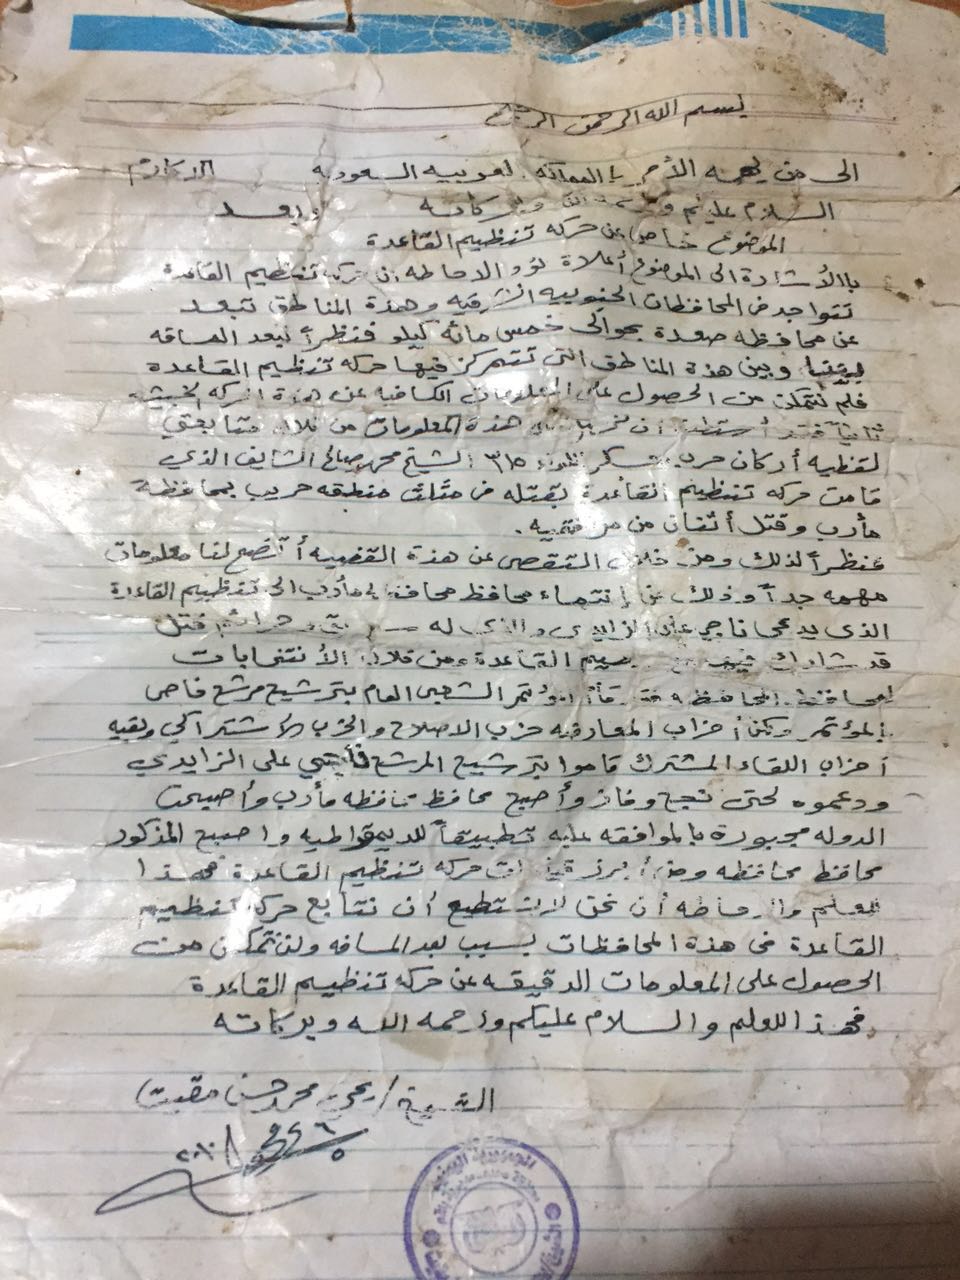 بسم الله الرحمن الرحيم
الى من يهمه الأمر بالمملكه العربيه السعوديه الاكارم
السلام عليكم ورحمة الله وبركاته وبعد
الموضوع خاص عن حركه تنظيم القاعدة
باالأشارة الى الموضوع أعلاة نود الاحاطه ان حركه تنظيم القاعدة
تتواجد في المحافظات الجنوبيه الشرقيه وهذة المناطق تبعد
عن محافظه صعدة بحوالي خمس مائه كيلو فنظراً لبعد المسافه
بيننا وبين هذة المناطق التي تتمركز فيها حركه تنظيم القاعدة
فلم نتمكن من الحصول على المعلومات الكافيه عن هذة الحركه الخبيثه
ثانياً فقد أن هذة المعلومات من خلال متابعتي
لقضيه أركان حرب اللواء ٣١٥ الشيخ محمد صالح الشايف الذي
قامت حركه تنظيم القاعدة بقتله في مثلث منطقه حريب بمحافظة
مأرب وقتل أثنان من مرافقيه.
فنظراً لذلك ومن خلال التقصي عن هذة القضيه أتضح لنا معلومات
مهمه جداً وذلك عن إنتماء محافظ محافظه مأرب الى تنظيم القاعدة
الذى يدعى ناجي علي الزايدي والذي له وجرائم قتل
قد شارك فيها مع تنظيم القاعدة ومن خلال الأنتخابات
لمحافظ المحافظه فقد قام المؤتمر الشعبي العام بترشيح مرشح خاص
بالمؤتمر ولكن أحزاب المعارضه حزب الاصلاح والحزب الأشتراكي وبقيه
أحزاب اللقاء المشترك قاموا بترشيح المرشح ناجي على الزايدي
ودعموه لحتى نجح وفاز وأصبح محافظ محافظه مأرب وأصبحت
الدوله مجبورة بالموافقه عليه تطبيقاً للديمقراطيه واصبح المذكور
محافظ محافظه ومن أبرز قيادات حركه تنظيم القاعدة فهذا
للعلم والاحاطه أن نحن لانستطيع أن نتابع حركه تنظيم
القاعدة في هذة المحافظات بسبب بعد المسافه ولن نتمكن من
الحصول على المعلومات الدقيقه عن حركه تنظيم القاعدة
فهذا للعلم والسلام عليكم ورحمه الله وبركاته
الشيخ/ يحيى محمد حسن مقيت
الجمهورية اليمنية